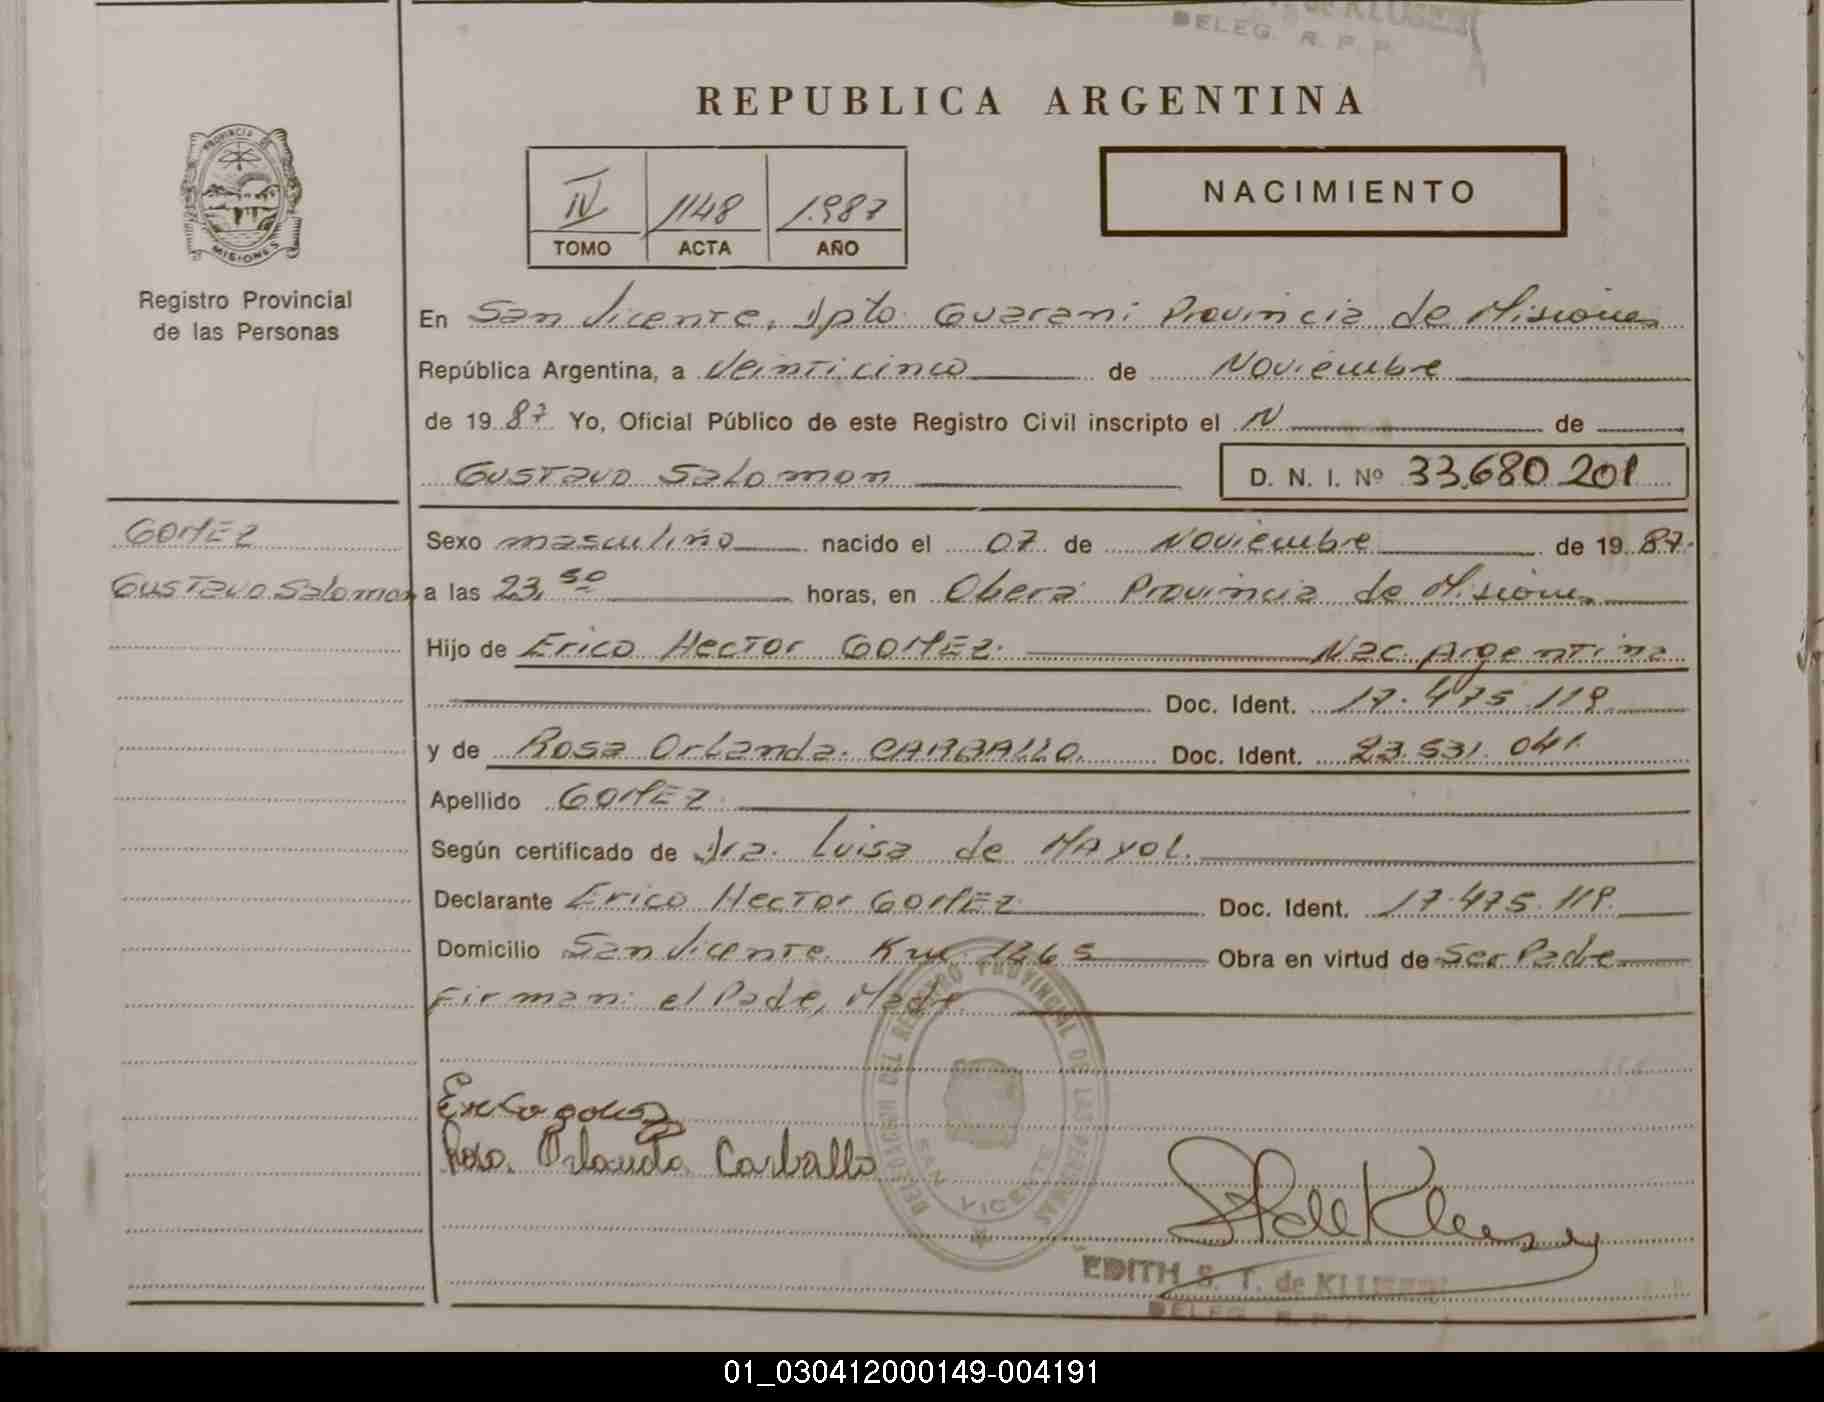 de KLUSENER
DELEG. R. P. P.
REPUBLICA ARGENTINA
PROVINCIA DE
MISIONES
IV 1148 1.987
TOMO ACTA AÑO
NACIMIENTO
Registro Provincial
de las Personas
En San Vicente, Dpto. Guarani Provincia de Misiones
República Argentina, a Veinticinco de Noviembre
de 19 87 Yo, Oficial Público de este Registro Civil inscripto el N de
Gustavo Salomon D. N. I. Nº 33.680.201
GOMEZ
Gustavo Salomon
Sexo masculino nacido el 07 de Noviembre de 19 87.
a las 23,50 horas, en Oberá Provincia de Misiones
Hijo de Erico Hector GOMEZ. Nac. Argentina
Doc. Ident. 17.475.119
y de Rosa Orlanda CARBALLO. Doc. Ident. 23.531.041.
Apellido GOMEZ
Según certificado de Dra. Luisa de MAYOL.
Declarante Erico Hector GOMEZ Doc. Ident. 17.475.119.
Domicilio San Vicente Km. 1265 Obra en virtud de Ser Padre
Firman: el Padre, Madre
Erico gomez
Rosa Orlanda Carballo
DELEGACION DEL REGISTRO PROVINCIAL DE LAS PERSONAS
SAN VICENTE
EDITH S. T. de KLUSENER
DELEG. R. P. P.
01_030412000149-004191